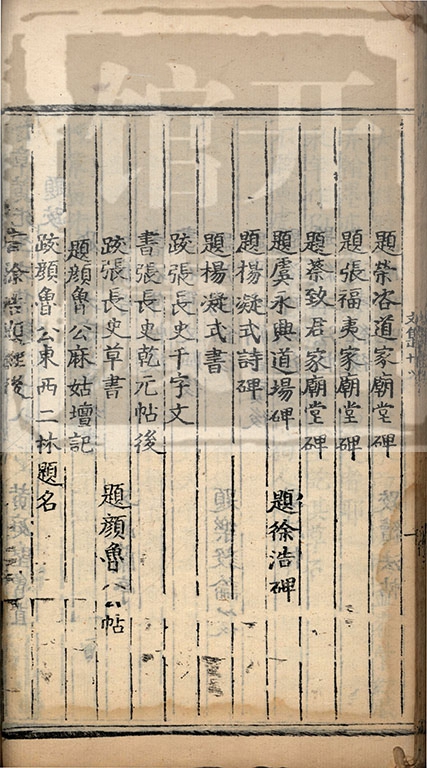 題榮咨道家廟堂碑
題張福夷家廟堂碑
題蔡致君家廟堂碑
題虞永興道場碑 題徐浩碑
題楊凝式詩碑
題楊凝式書
跋張長史千字文
書張長史乾元帖後
跋張長史草書 題顏魯公帖
題顏魯公麻姑壇記
跋顏魯公東西二林題名
書徐浩題經後